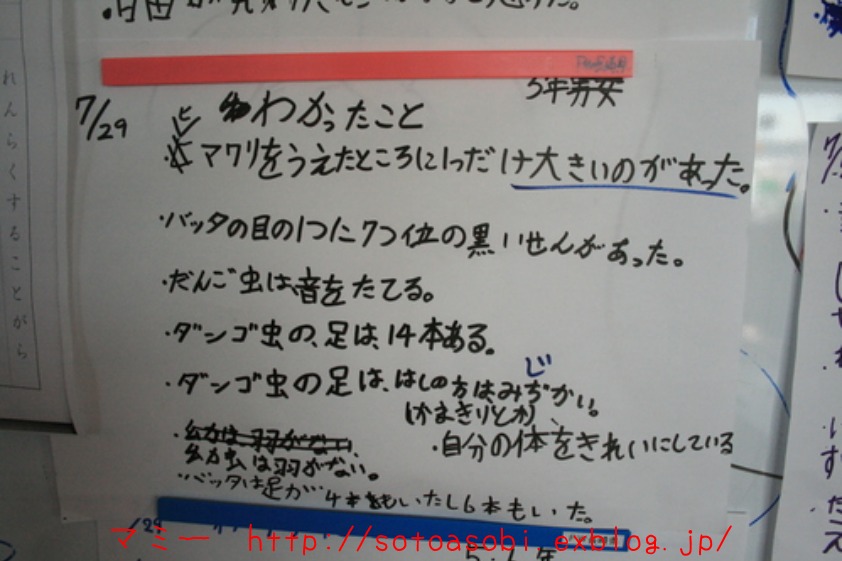 れんらくすることがら
7/29
5年男女
わかったこと
・ヒマワリをうえたところに1つだけ大きいのがあった。
・バッタの目の1つに7つ位の黒いせんがあった。
・だんご虫は、音をたてる。
・ダンゴ虫の、足は、14本ある。
じ
・ダンゴ虫の足は、はしの方はみぢかい。
(かまきりとか)、
・自分の体をきれいにしている
・幼は羽がない、
幼虫は羽がない。
・バッタは足が4本もいたし6本もいた。
/29
マミー http://sotoasobi.exblog.jp/